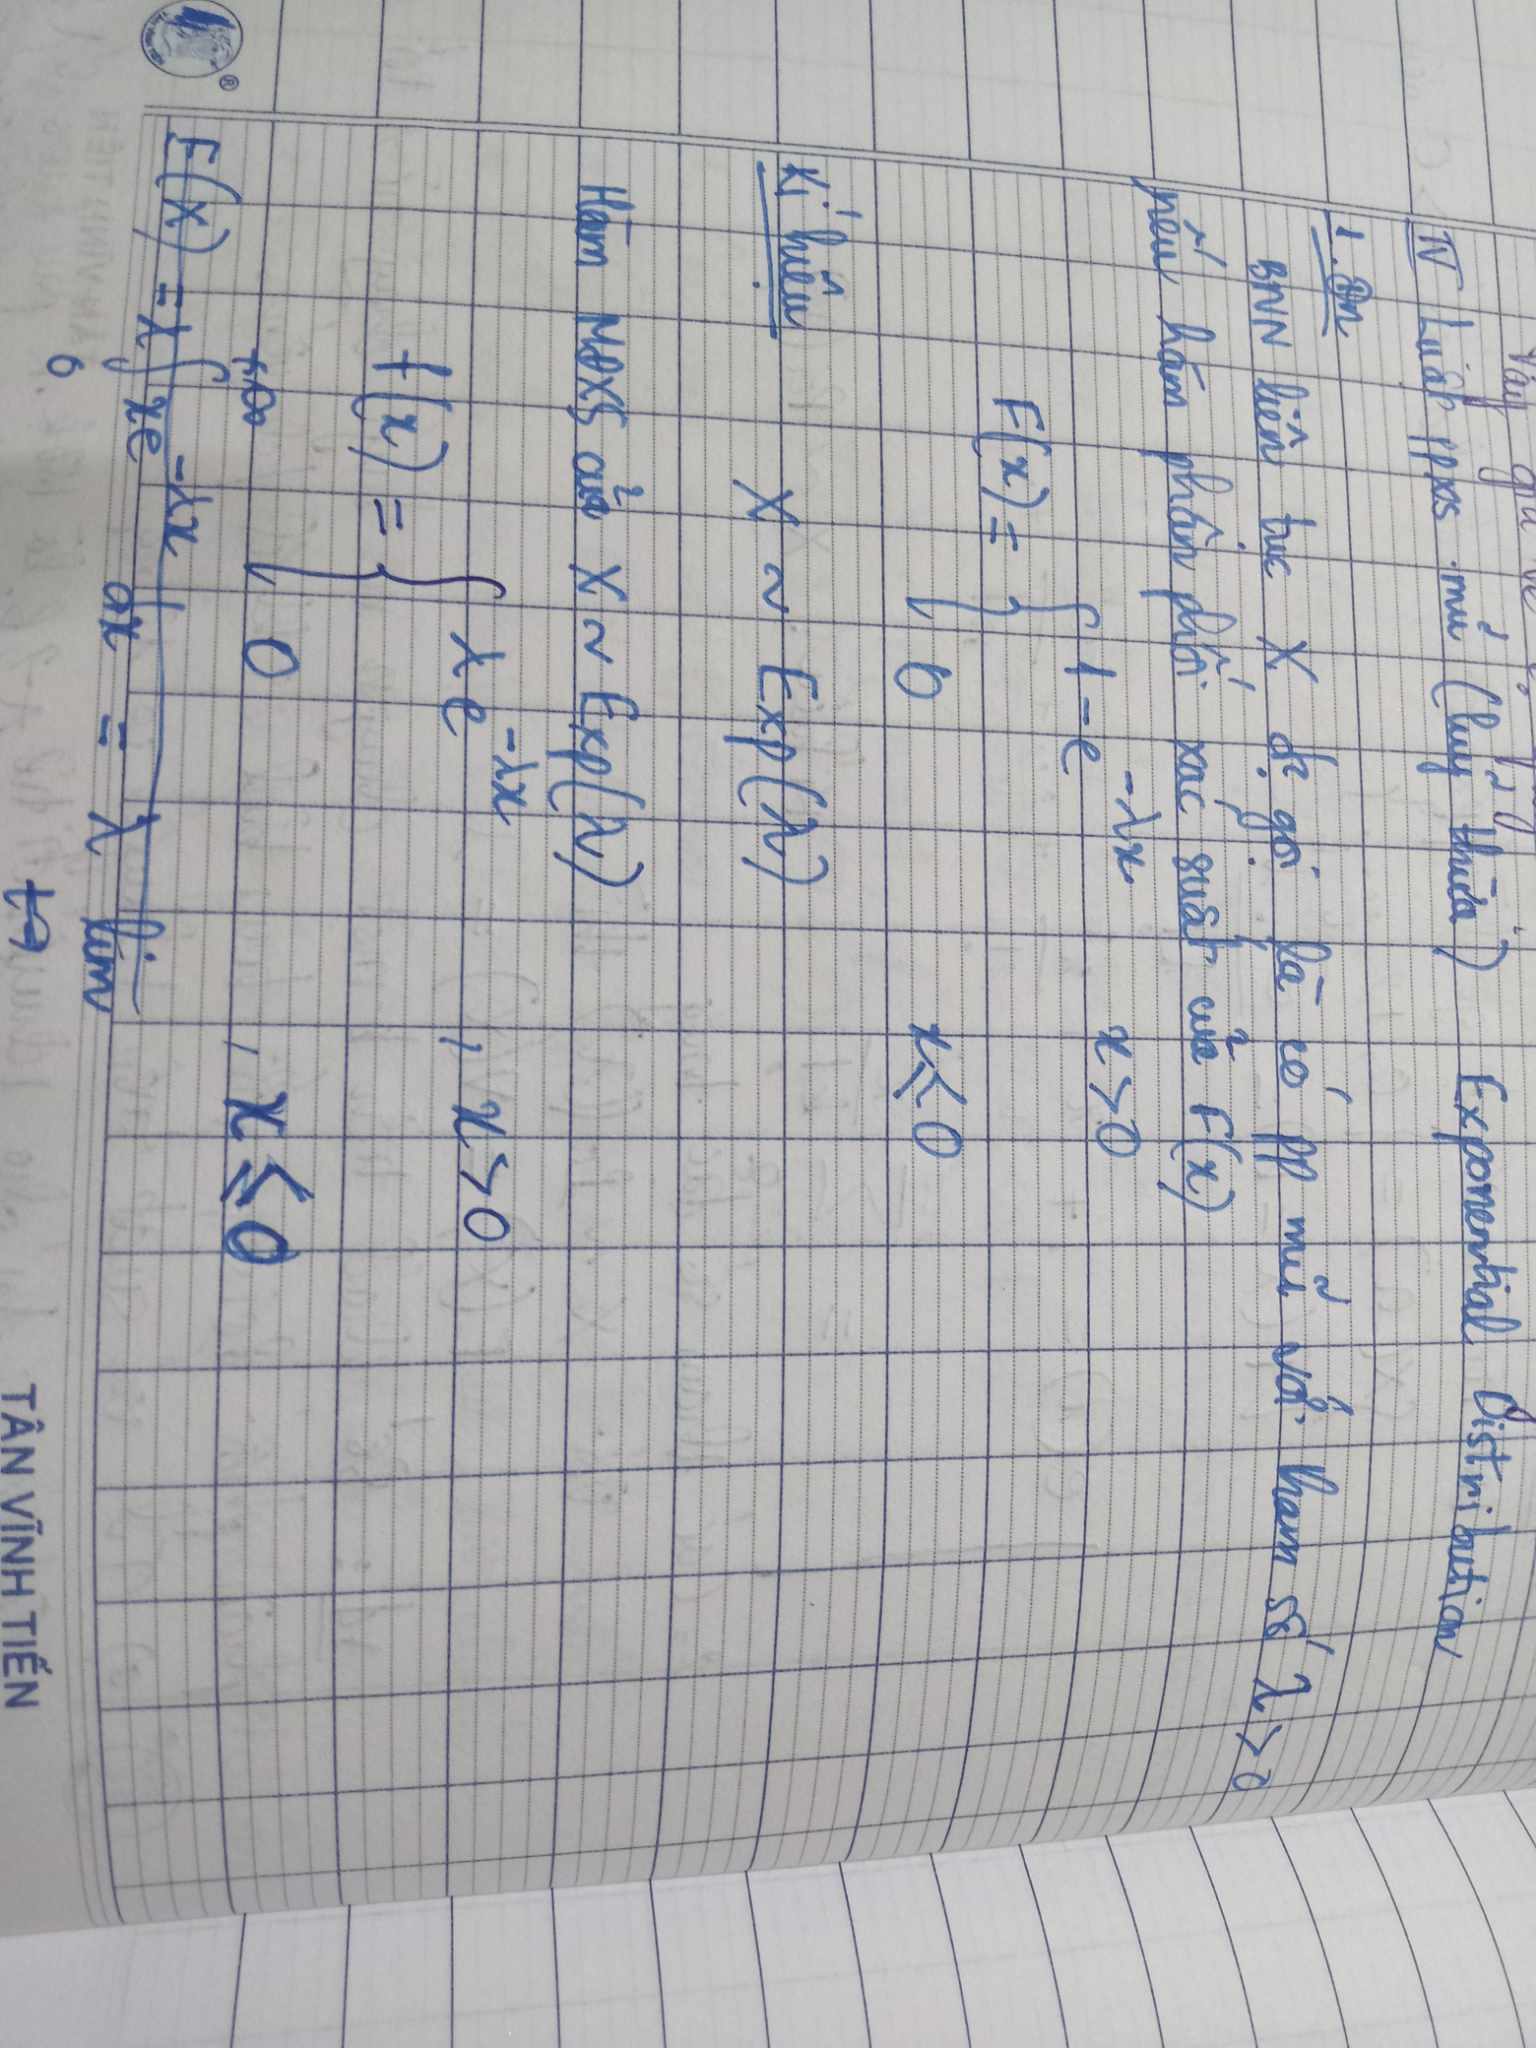 IV Luật ppxs mũ (luỹ thừa) Exponential Distribution
1. Đn
BNN liên tục X đc gọi là có pp mũ với tham số λ > 0
nếu hàm phân phối xác suất của F(x)
F(x) = { 1 - e^{-λx} x > 0
0 x ≤ 0
Kí hiệu X ~ Exp(λ)
Hàm MĐXS của X ~ Exp(λ)
f(x) = { λe^{-λx} , x > 0
0 , x ≤ 0
E(X) = λ ∫_0^{+∞} xe^{-λx} dx = λ lim t→
TÂN VĨNH TIẾN